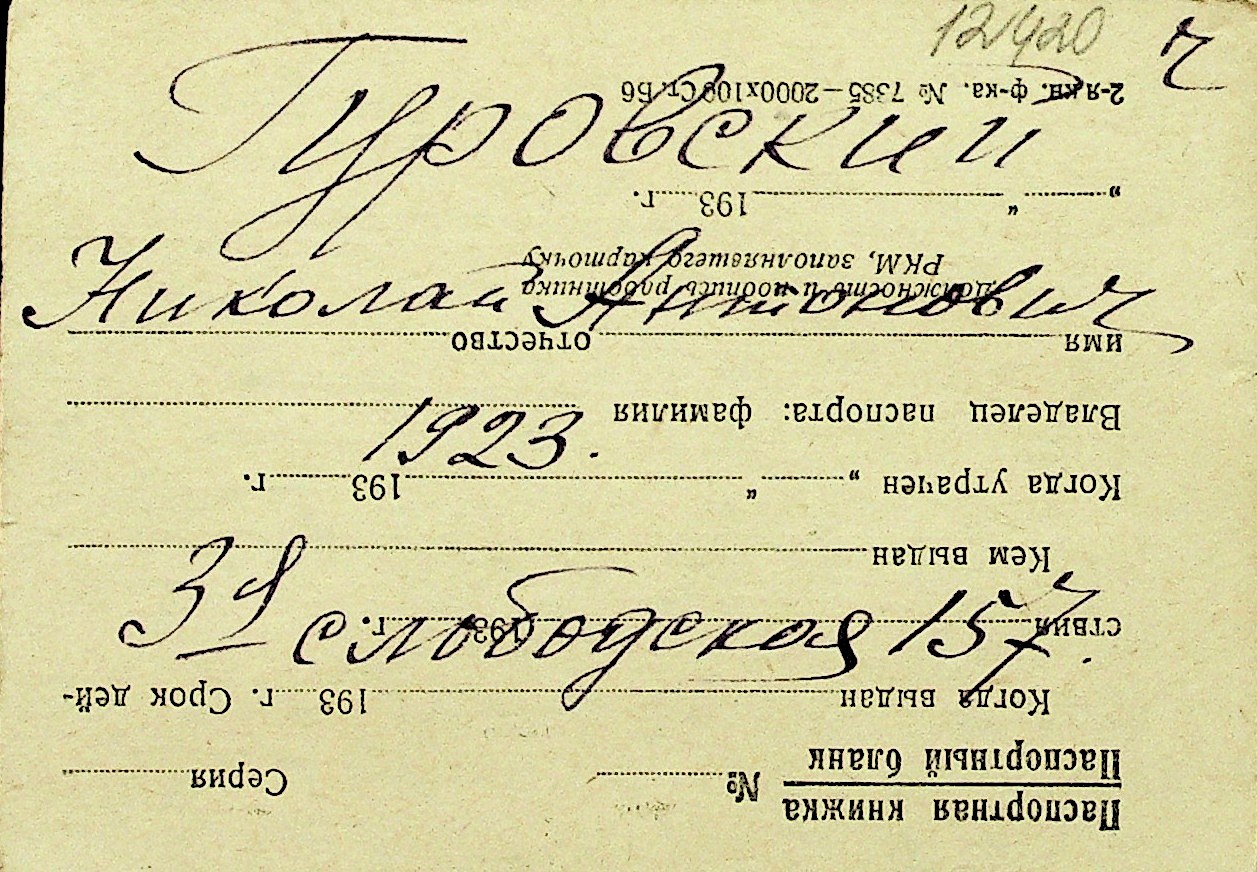 12420 ч
Гуровский
Николай Антонович
1923.
3я слободская 157.
Паспортная книжка
Паспортный бланк
№ Серия
Когда выдан 193 г. Срок дей-
ствия 193 г.
Кем выдан
Когда утрачен „ “ 193 г.
Владелец паспорта: фамилия
имя отчество
Должность и подпись работника
РКМ, заполнявшего карточку
„ “ 193 г.
2-я кн. ф-ка. № 7385—2000х100 Ст. Б6